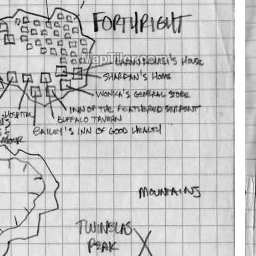 FORTHRIGHT
HOUSE
SHARDAN'S HOME
WONKA'S GENERAL STORE
INN OF THE FEATHERED SERPENT
BUFFALO TAVERN
HOSPITAL
BAILEY'S INN OF GOOD HEALTH
MOUNTAINS
TWINCLAS
PEAK